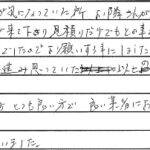 が気になっていた所、お隣さんが
が来て下さり見積りだけでもとの事
でしたのでお願いする事にしました。
進み思っていた 以上の
方もとても良い方で 良い業者にお
いました。